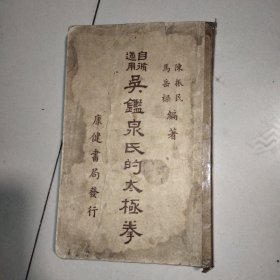 陳振民
馬岳樑
編著
自習
適用
吳鑑泉氏的太極拳
康健書局發行